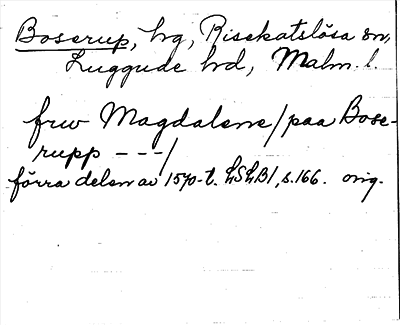 Boserup, hg, Risekatslösa sn,
Luggude hd, Malm. l.
fruv Magdalene/paa Bose-
rupp ---/
förra delen av 1570-t. LSLB1, s.166. orig.